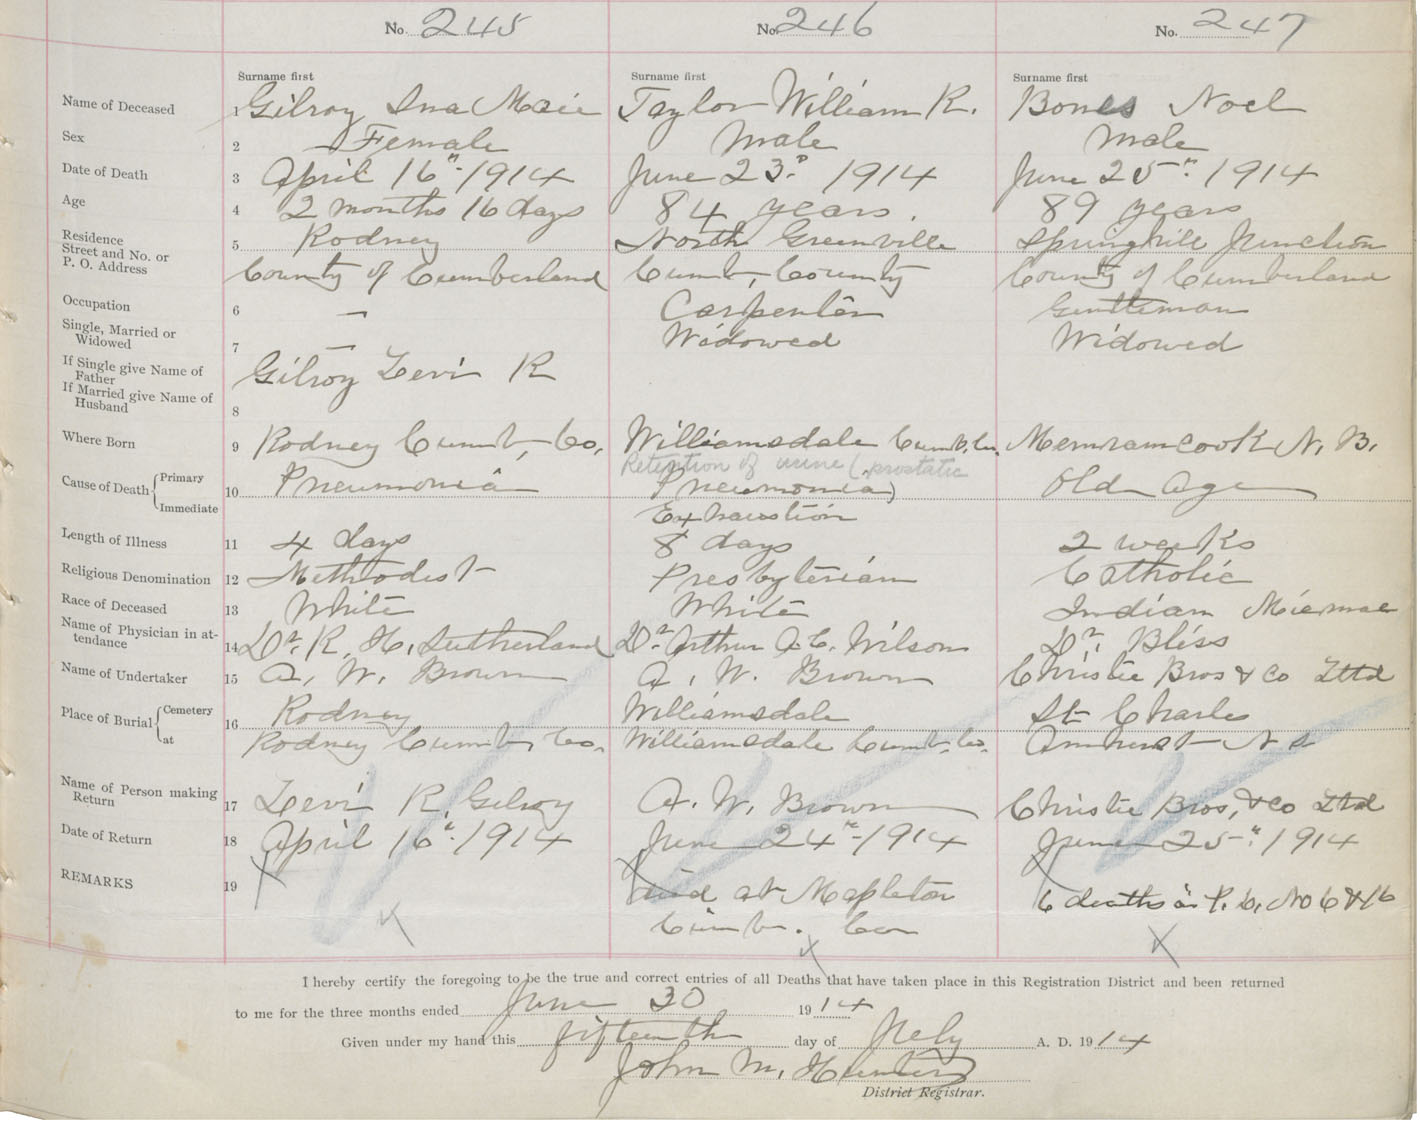 No. 245 No. 246 No. 247
Surname first Surname first Surname first
Name of Deceased 1 Gilroy Ina Marie Taylor William R. Bones Noel
Sex 2 Female Male Male
Date of Death 3 April 16" 1914 June 23.D 1914 June 25". 1914
Age 4 2 months 16 days 84 years. 89 years
Residence Street and No. or P. O. Address 5 Rodney North Greenville Springhill Junction
County of Cumberland Cumb, County County of Cumberland
Occupation 6 — Carpenter Gentleman
Single, Married or Widowed 7 — Widowed Widowed
If Single give Name of Father Gilroy Levi R
If Married give Name of Husband 8
Where Born 9 Rodney Cumb, Co, Williamsdale Cumb. Co. Memramcook N. B.
Retention of urine (prostatic
Cause of Death { Primary 10 Pneumonia Pneumonia) Old Age
Immediate Exhaustion
Length of Illness 11 4 days 8 days 2 weeks
Religious Denomination 12 Methodist Presbyterian Catholic
Race of Deceased 13 White White Indian Micmac
Name of Physician in attendance 14 Dr. R. H. Sutherland Dr. Arthur A. C. Wilson Dr. Bliss
Name of Undertaker 15 A. W. Brown A. W. Brown Christie Bros & Co Ltd
Place of Burial { Cemetery 16 Rodney Williamsdale St Charles
at Rodney Cumb, Co. Williamsdale Cumb. Co. Amherst N S
Name of Person making Return 17 Levi R, Gilroy A. W. Brown Christie Bros, & Co Ltd
Date of Return 18 April 16". 1914 June 24" 1914 June 25". 1914
REMARKS 19 died at Mapleton 6 deaths in P. D. No 6 & 16
Cumb. Co
I hereby certify the foregoing to be the true and correct entries of all Deaths that have taken place in this Registration District and been returned
to me for the three months ended June 30 1914
Given under my hand this fifteenth day of July A. D. 1914
John M. Hunter
District Registrar.